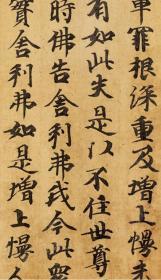 輩罪根深重及增上慢未
有如此失是以不住世尊
時佛告舍利弗我今此眾
實舍利弗如是增上慢人